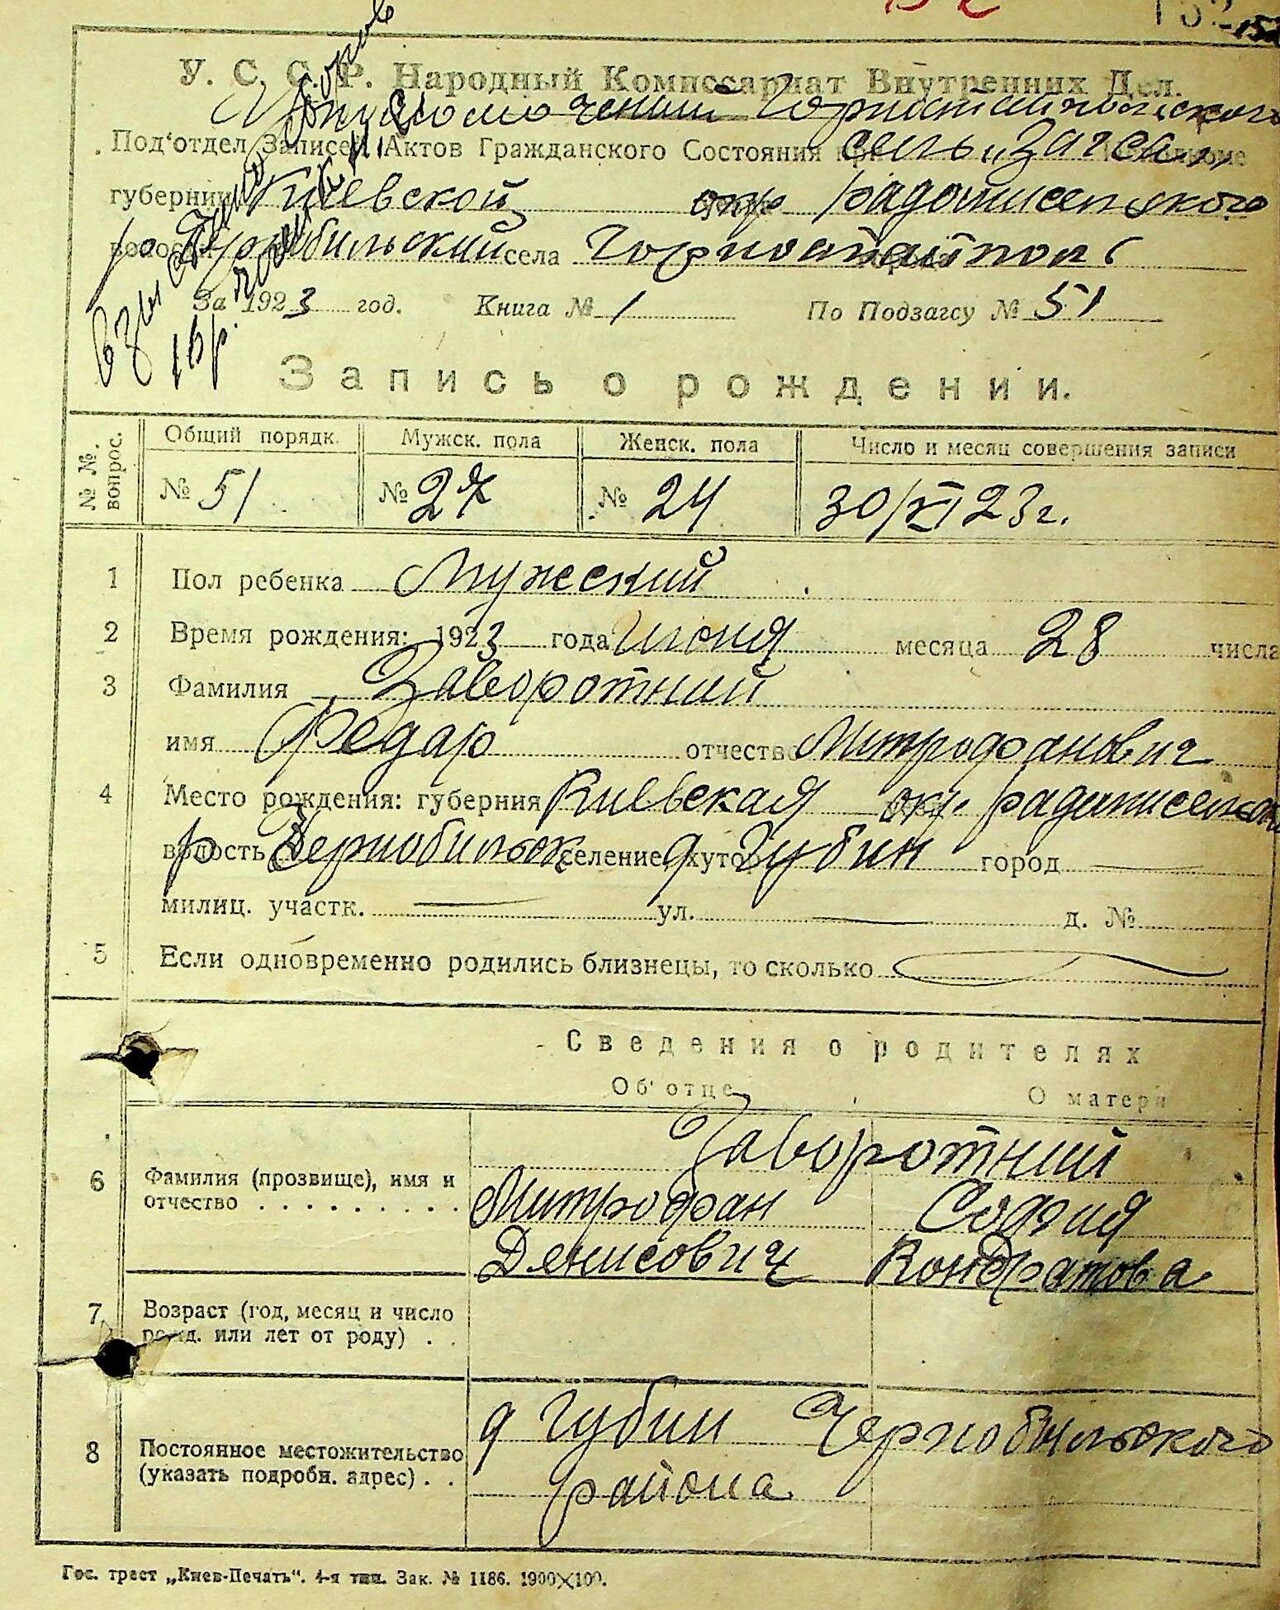 152
У. С. С. Р. Народный Комиссариат Внутренних Дел.
Под'отдел Записей Актов Гражданского Состояния при сель „Загсе"
губернии Киевской окр Радомисельского
р Чернобильский села Горностайполь
За 1923 год. Книга № 1 По Подзагсу № 51
Запись о рождении.
№ № вопрос. Общий порядк. Мужск. пола Женск. пола Число и месяц совершения записи
№ 51 № 27 № 24 30/XI 23 г.
1 Пол ребенка Мужеский
2 Время рождения: 1923 года Июня месяца 28 числа
3 Фамилия Заворотний
имя Федар отчество Митрофанович
4 Место рождения: губерния Киевская окр. Радомисельск
р волость Чернобильск селение, хутор д Губин город
милиц. участк. ул. д. №
5 Если одновременно родились близнецы, то сколько
Сведения о родителях
Об' отце О матери
Заворотний
6 Фамилия (прозвище), имя и
отчество Митрофан София
Денисович Кондратова
7 Возраст (год, месяц и число
рожд. или лет от роду)
8 Постоянное местожительство
(указать подробн. адрес)
д Губин Чернобильского
района
Гос. трест „Киев-Печать". 4-я тип. Зак. № 1186. 1900×100.